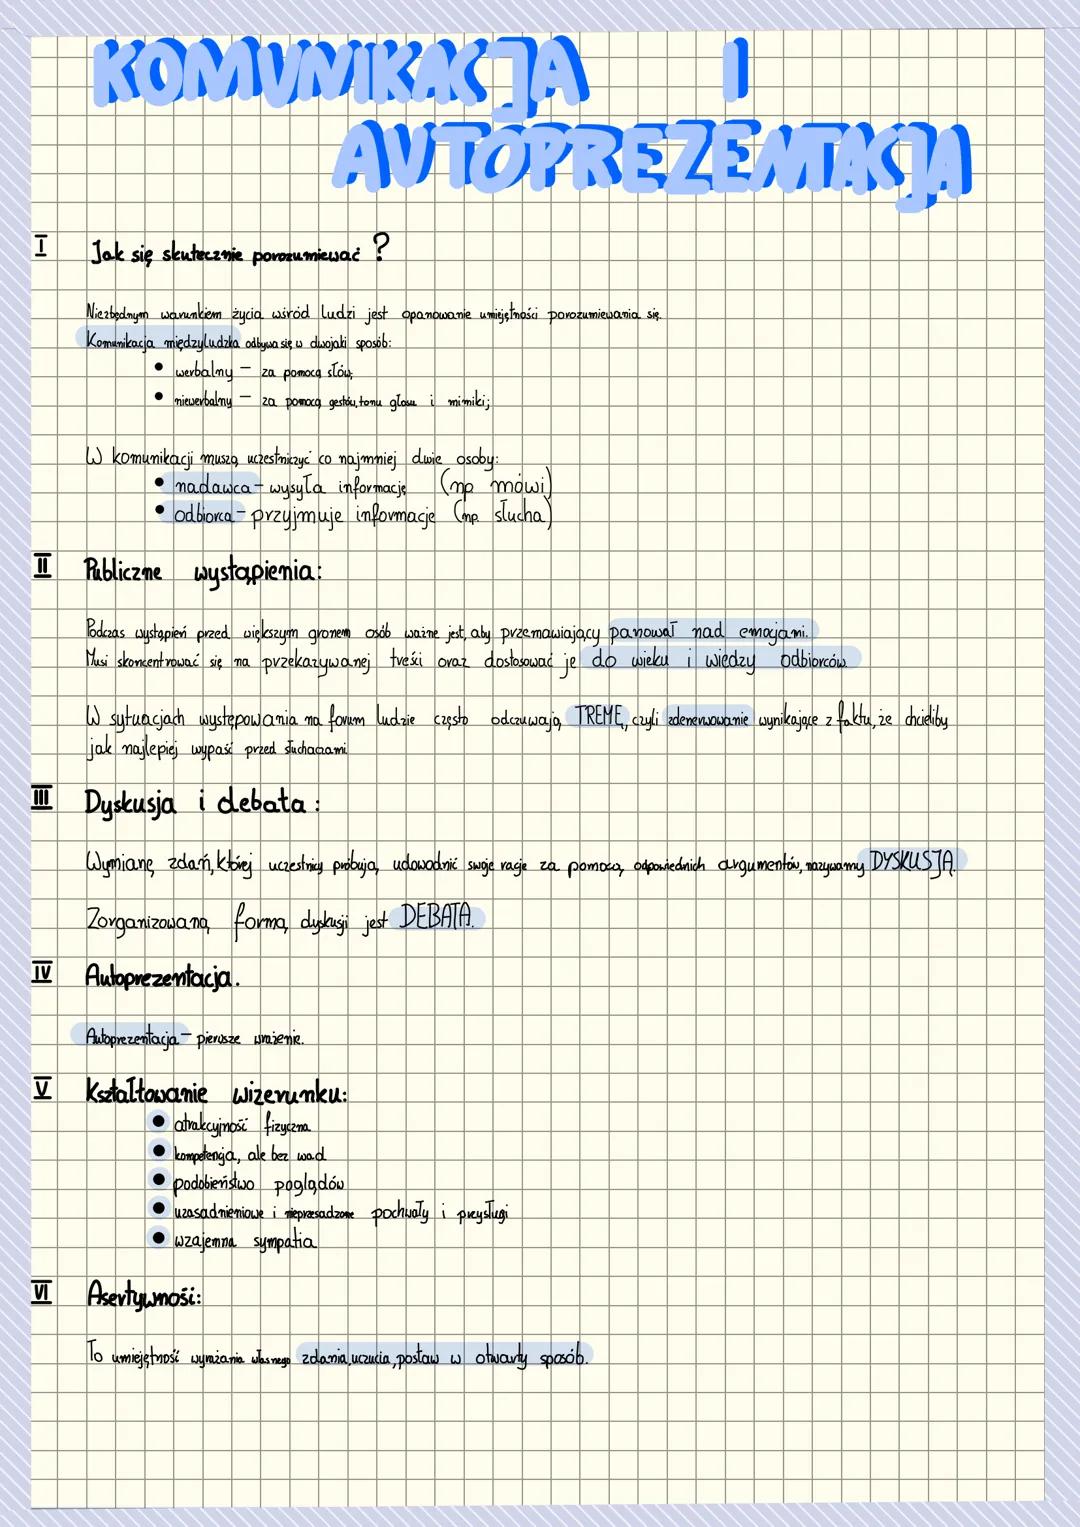 KOMUNIKACJA I
AUTOPREZENTACJA
I Jak się skutecznie porozumiewać ?
Niezbędnym warunkiem życia wśród ludzi jest opanowanie umiejętności porozumiewania się.
Komunikacja międzyludzka odbywa się w dwojaki sposób:
• werbalny – za pomocą słów;
• niewerbalny – za pomocą gestów, tonu głosu i mimiki;
W komunikacji muszą uczestniczyć co najmniej dwie osoby:
• nadawca – wysyła informację (np mówi)
• odbiorca – przyjmuje informacje (np. słucha)
II Publiczne wystąpienia:
Podczas wystąpień przed większym gronem osób ważne jest, aby przemawiający panował nad emocjami.
Musi skoncentrować się na przekazywanej treści oraz dostosować je do wieku i wiedzy odbiorców.
W sytuacjach występowania na forum ludzie często odczuwają TREMĘ, czyli zdenerwowanie wynikające z faktu, że chcieliby
jak najlepiej wypaść przed słuchaczami
III Dyskusja i debata :
Wymianę zdań, której uczestnicy próbują udowodnić swoje racje za pomocą odpowiednich argumentów, nazywamy DYSKUSJĄ.
Zorganizowaną formą dyskusji jest DEBATA.
IV Autoprezentacja.
Autoprezentacja – pierwsze wrażenie.
V Kształtowanie wizerunku:
• atrakcyjność fizyczna
• kompetencja, ale bez wad
• podobieństwo poglądów
• uzasadnieniowe i nieprzesadzone pochwały i przysługi
• wzajemna sympatia
VI Asertywności:
To umiejętność wyrażania własnego zdania, uczucia, postaw w otwarty sposób.